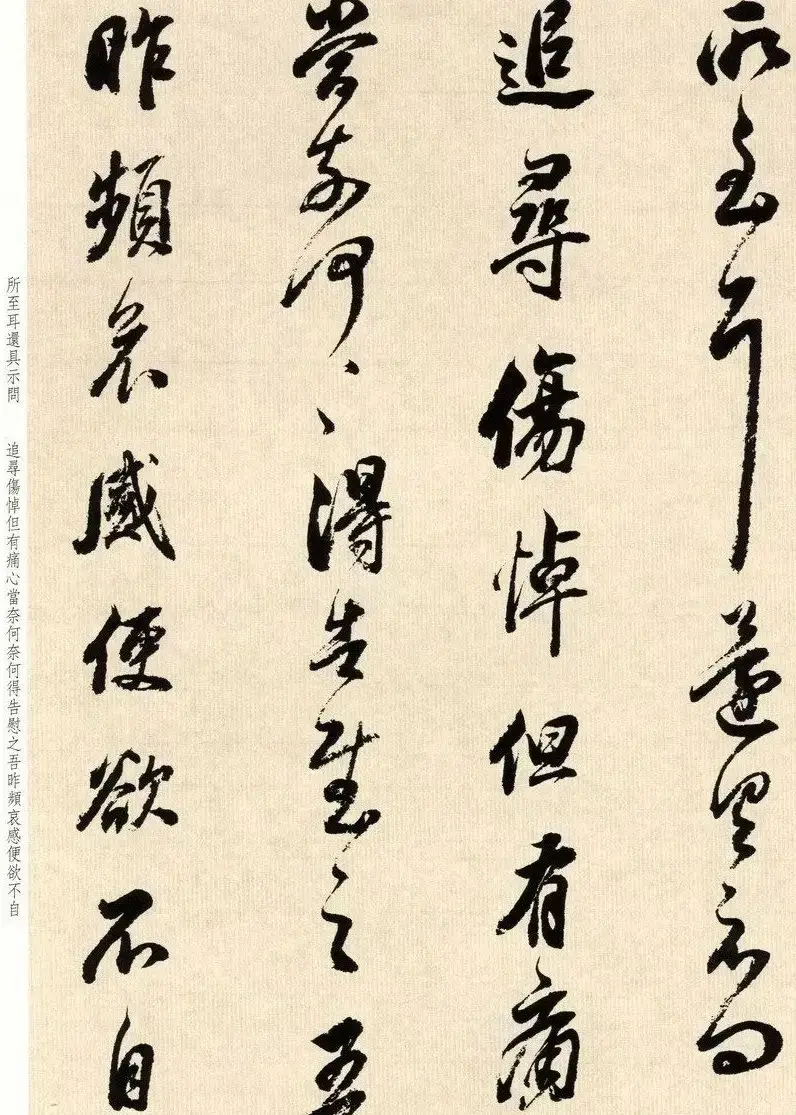 所至耳還具示問
追尋傷悼但有痛
當奈何〻得告慰之吾
昨頻哀感便欲不自
所至耳還具示問　追尋傷悼但有痛心當奈何奈何得告慰之吾昨頻哀感便欲不自